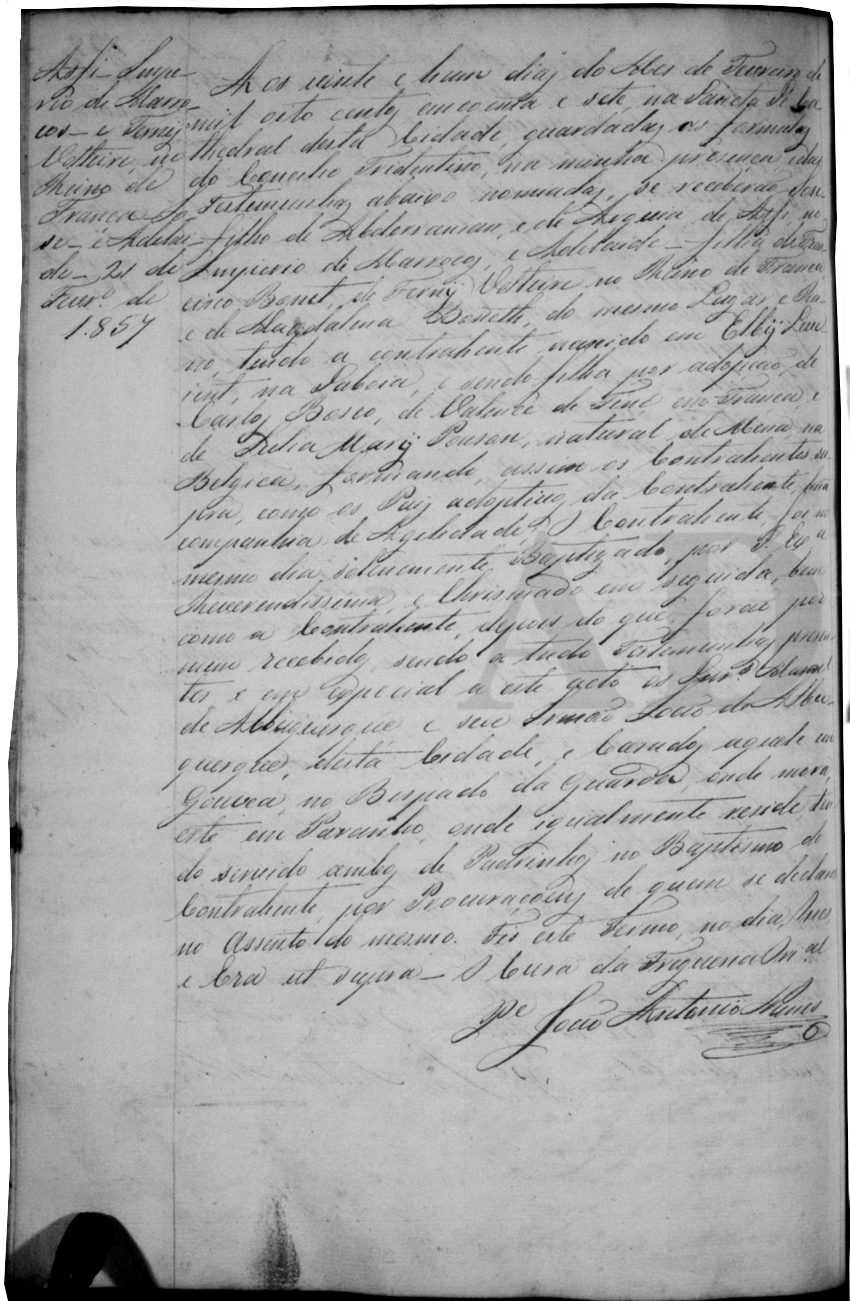 Asfi Impe-
rio de Marro-
cos - e Ferny
Volteire, no
Reino de
França Jo-
sé - e Adelai-
de - 21 de
Fevr.º de
1.857
Aos vinte e hum dias do Mes de Fevereiro de
mil oito centos cincoenta e sete, na Sancta Sé Ca-
thedral desta Cidade guardadas as formulas
do Concilio Tridentino, na minha presença, e das
Testemunhas abaixo nomiadas, se receberão José
filho de Abderraman, e de Aiquia, de Asfi, no
Imperio de Marrocos, e Adelaide - filha de Fran-
cisco Bonet, de Ferny Volteire no Reino de França
e de Magdalena Boneth, do mesmo Lugar e Rei-
no, tendo a contrahente nascido em
na Saboia, e sendo filha por adopção, de
Carlos Bosco, de Valence de em França e
de Julia Mary natural de na
Belgica, formando, assim os Contrahentes su-
pra, como os Pais adoptivos da Contrahente, huma
companhia de Agilidade; O Contrahente, foi no
mesmo dia, solenemente Baptizado, por S. Ex.ª
Reverendissima, e Chrismado em seguida, bem
como a Contrahente, depois do que, forão por
mim recebidos, sendo a tudo Testemunhas presen-
tes e em especial a este acto os Manoel
de Albuquerque e seu irmão João de Albu-
querque, desta Cidade, e Casados aquele em
Gouvea, no Bispado da Guarda, onde mora,
este em Paranho, onde igualmente reside, ten-
do servido ambos de Padrinhos no Baptismo do
Contrahente, por Procuraçoens de quem se declara
no Assento do mesmo. Fes este Termo, no dia, Mes,
e Era ut supra - O Cura da Freguezia Or.al
P.e João Antonio Nunes
AD